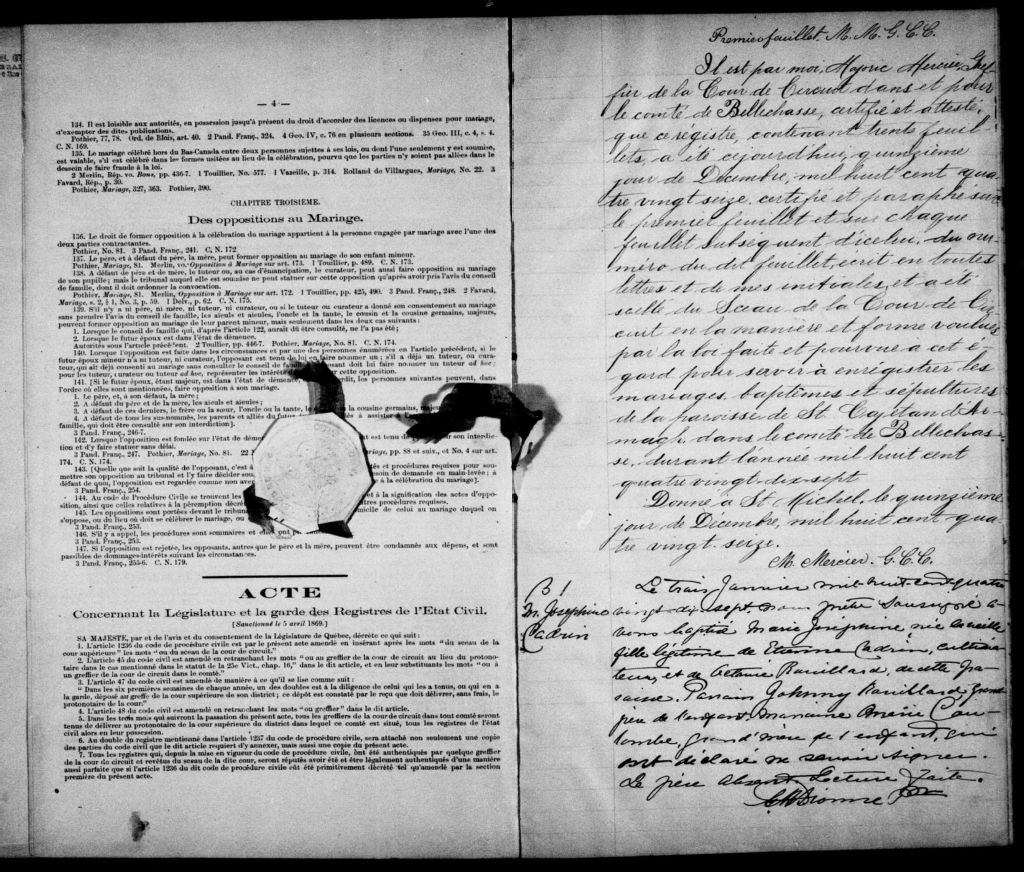 — 4 —
134. Il est loisible aux autorités, en possession jusqu'à présent du droit d'accorder des licences ou dispenses pour mariage,
d'exempter des dites publications.
Pothier, 77, 78. Ord. de Blois, art. 40. 2 Pand. Franç., 324. 4 Geo. IV, c. 76 en plusieurs sections. 35 Geo. III, c. 4, s. 4.
C. N. 169.
135. Le mariage célébré hors du Bas-Canada entre deux personnes sujettes à ses lois, ou dont l'une seulement y est soumise,
est valable, s'il est célébré dans les formes usitées au lieu de la célébration, pourvu que les parties n'y soient pas allées dans le
dessein de faire fraude à la loi.
2 Merlin, Rép. vo. Bans, pp. 436-7. 1 Touillier, No. 577. 1 Vazeille, p. 314. Rolland de Villargues, Mariage, No. 22. 3
Favard, Rép., p. 30.
Pothier, Mariage, 327, 363. Pothier, 390.
CHAPITRE TROISIÈME.
Des oppositions au Mariage.
136. Le droit de former opposition à la célébration du mariage appartient à la personne engagée par mariage avec l'une des
deux parties contractantes.
Pothier, No. 81. 3 Pand. Franç., 241. C. N. 172.
137. Le père, et à défaut du père, la mère, peut former opposition au mariage de son enfant mineur.
Pothier, Mariage, 81. Merlin, vo. Opposition à Mariage sur art. 173. 1 Touillier, p. 489. C. N. 173.
138. A défaut de père et de mère, le tuteur ou, au cas d'émancipation, le curateur, peut aussi faire opposition au mariage
de son pupille; mais le tribunal auquel elle est soumise ne peut statuer sur cette opposition qu'après avoir pris l'avis du conseil
de famille, dont il doit ordonner la convocation.
Pothier, Mariage, 81. Merlin, Opposition à Mariage sur art. 172. 1 Touillier, pp. 425, 490. 3 Pand. Franç., 248. 2 Favard,
Mariage, s. 2, § 1, No. 3, p. 59. 1 Delv., p. 62. C. N. 175.
139. S'il n'y a ni père, ni mère, ni tuteur, ni curateur, ou si le tuteur ou curateur a donné son consentement au mariage
sans prendre l'avis du conseil de famille, les aïeuls et aïeules, l'oncle et la tante, le cousin et la cousine germains, majeurs,
peuvent former opposition au mariage de leur parent mineur, mais seulement dans les deux cas suivants:
1. Lorsque le conseil de famille qui, d'après l'article 122, aurait dû être consulté, ne l'a pas été;
2. Lorsque le futur époux est dans l'état de démence.
Autorités sous l'article précédent. 2 Touillier, pp. 446-7. Pothier, Mariage, No. 81. C. N. 174.
140. Lorsque l'opposition est faite dans les circonstances et par une des personnes énumérées en l'article précédent, si le
futur époux mineur n'a ni tuteur, ni curateur, l'opposant est tenu de lui en faire nommer un; s'il a déjà un tuteur, ou cura-
teur, qui ait déjà consenti au mariage sans consulter le conseil de famille, sant doit lui faire nommer un tuteur ad hoc;
pour les tuteur, curateur ou tuteur ad hoc, représenter les intérêts cette opposition.
141. [Si le futur époux, étant majeur, est dans l'état de démence, rdit, les personnes suivantes peuvent, dans
l'ordre où elles sont mentionnées, faire opposition à son mariage.
1. Le père, et, à son défaut, la mère;
2. A défaut du père et de la mère, les aïeuls et aïeules;
3. A défaut de ces derniers, le frère ou la sœur, l'oncle ou la tante, la cousine germains, majeurs
4. A défaut de tous les sus-nommés, les parents et alliés du futur à assister
famille, qui doit être consulté sur son interdiction].
3 Pand. Franç., 246-7.
142. Lorsque l'opposition est fondée sur l'état de démence est tenu de son interdic-
tion et d'y faire statuer sans délai.
3 Pand. Franç., 247. Pothier, Mariage, No. 81. 22 riage, pp. 88 et suiv., et No. 4 sur art.
174. C. N. 174.
143. [Quelle que soit la qualité de l'opposant, c'est à tés et procédures requises pour sou-
mettre son opposition au tribunal et l'y faire décider sou soin de demande en main-levée; à
défaut de quoi, l'opposition est regardée comme non ave à la célébration du mariage].
3 Pand. Franç., 254.
144. Au code de Procédure Civile se trouvent les et à la signification des actes d'oppo-
sition, ainsi que celles relatives à la péremption décrét tres procédures requises.
145. Les oppositions sont portées devant le tribun micile de celui au mariage duquel on
s'oppose, ou du lieu où doit se célébrer le mariage, ou
3 Pand. Franç., 253.
146. S'il y a appel, les procédures sont sommaires et elles ont
3 Pand. Franç., 253.
147. Si l'opposition est rejetée, les opposants, autres que le père et la mère, peuvent être condamnés aux dépens, et sont
passibles de dommages-intérêts suivant les circonstances.
3 Pand. Franç., 255-6. C. N. 179.
ACTE
Concernant la Législature et la garde des Registres de l'Etat Civil.
[Sanctionné le 5 avril 1869.]
SA MAJESTÉ, par et de l'avis et du consentement de la Législature de Québec, décrète ce qui suit:
1. L'article 1236 du code de procédure civile est par le présent acte amendé en insérant après les mots "du sceau de la
cour supérieure" les mots "ou du sceau de la cour de circuit."
2. L'article 45 du code civil est amendé en retranchant les mots "ou au greffier de la cour de circuit au lieu du protono-
taire dans le cas mentionné dans le statut de la 25e Vict., chap. 16," dans le dit article, et en leur substituants les mots "ou à
un greffier de la cour de circuit dans le comté."
3. L'article 47 du code civil est amendé de manière à ce qu'il se lise comme suit:
"Dans les six premières semaines de chaque année, un des doubles est à la diligence de celui qui les a tenus, ou qui en a
la garde, déposé au greffe de la cour supérieure de son district; ce dépôt est constaté par le reçu que doit délivrer, sans frais, le
protonotaire de la cour."
4. L'article 48 du code civil est amendé en retranchant les mots "ou greffier" dans le dit article.
5. Dans les trois mois qui suivront la passation du présent acte, tous les greffiers de la cour de circuit dans tout comté seront
tenus de délivrer au protonotaire de la cour supérieure du district dans lequel ce comté est situé, tous les registres de l'état
civil alors en leur possession.
6. Au double du registre mentionné dans l'article 1237 du code de procédure civile, sera attaché non seulement une copie
des parties du code civil que le dit article requiert d'y annexer, mais aussi une copie du présent acte.
7. Tous les registres qui, depuis la mise en vigueur du code de procédure civile, ont été authentiqués par quelque greffier
de la cour de circuit et revêtus du sceau de la dite cour, seront réputés avoir été et être légalement authentiqués d'une manière
aussi parfaite que si l'article 1236 du dit code de procédure civile eût été primitivement décrété tel qu'amendé par la section
première du présent acte.
Premier feuillet. M. M. G. C. C.
Il est par moi, Majoric Mercier, Gref-
fier de la Cour de Circuit dans et pour
le comté de Bellechasse, certifié et attesté,
que ce régistre, contenant trente feuil
lets, a été cejourd'hui, quinzième
jour de Décembre, mil huit cent qua
tre vingt seize, certifié et paraphé sur
le premier feuillet et sur chaque
feuillet subséquent d'icelui, du nu-
méro du dit feuillet, écrit en toutes
lettres et de mes initiales, et a été
scellé du Sceau de la Cour de Cir
cuit en la manière et forme voulues
par la loi faite et pourvue a cet é-
gard pour servir à enregistrer les
mariages, baptêmes et sépultures
de la paroisse de St. Cajetan d'Ar-
magh, dans le comté de Bellechas-
se, durant l'année mil huit cent
quatre vingt dix-sept
Donné à St Michel, le quinzième
jour de Décembre, mil huit cent qua
tre vingt seize.
M. Mercier. G. C. C.
B 1
M. Josephine
Cadrin
Le trois Janvier mil huit cent quatre
vingt dix sept nous prêtre soussigné a-
vons baptisé Marie Joséphine née la veille
fille légitime de Etienne Cadrin, cultiva-
teur, et de Octavie Rouillard, de cette pa-
roisse. Parrain Johnny Rouillard Grand
père de l'enfant, marraine Marie Cou-
lombe, grand'mère de l'enfant, qui
ont déclaré ne savoir signer.
Le père absent. Lecture faite.
Dionne Ptre